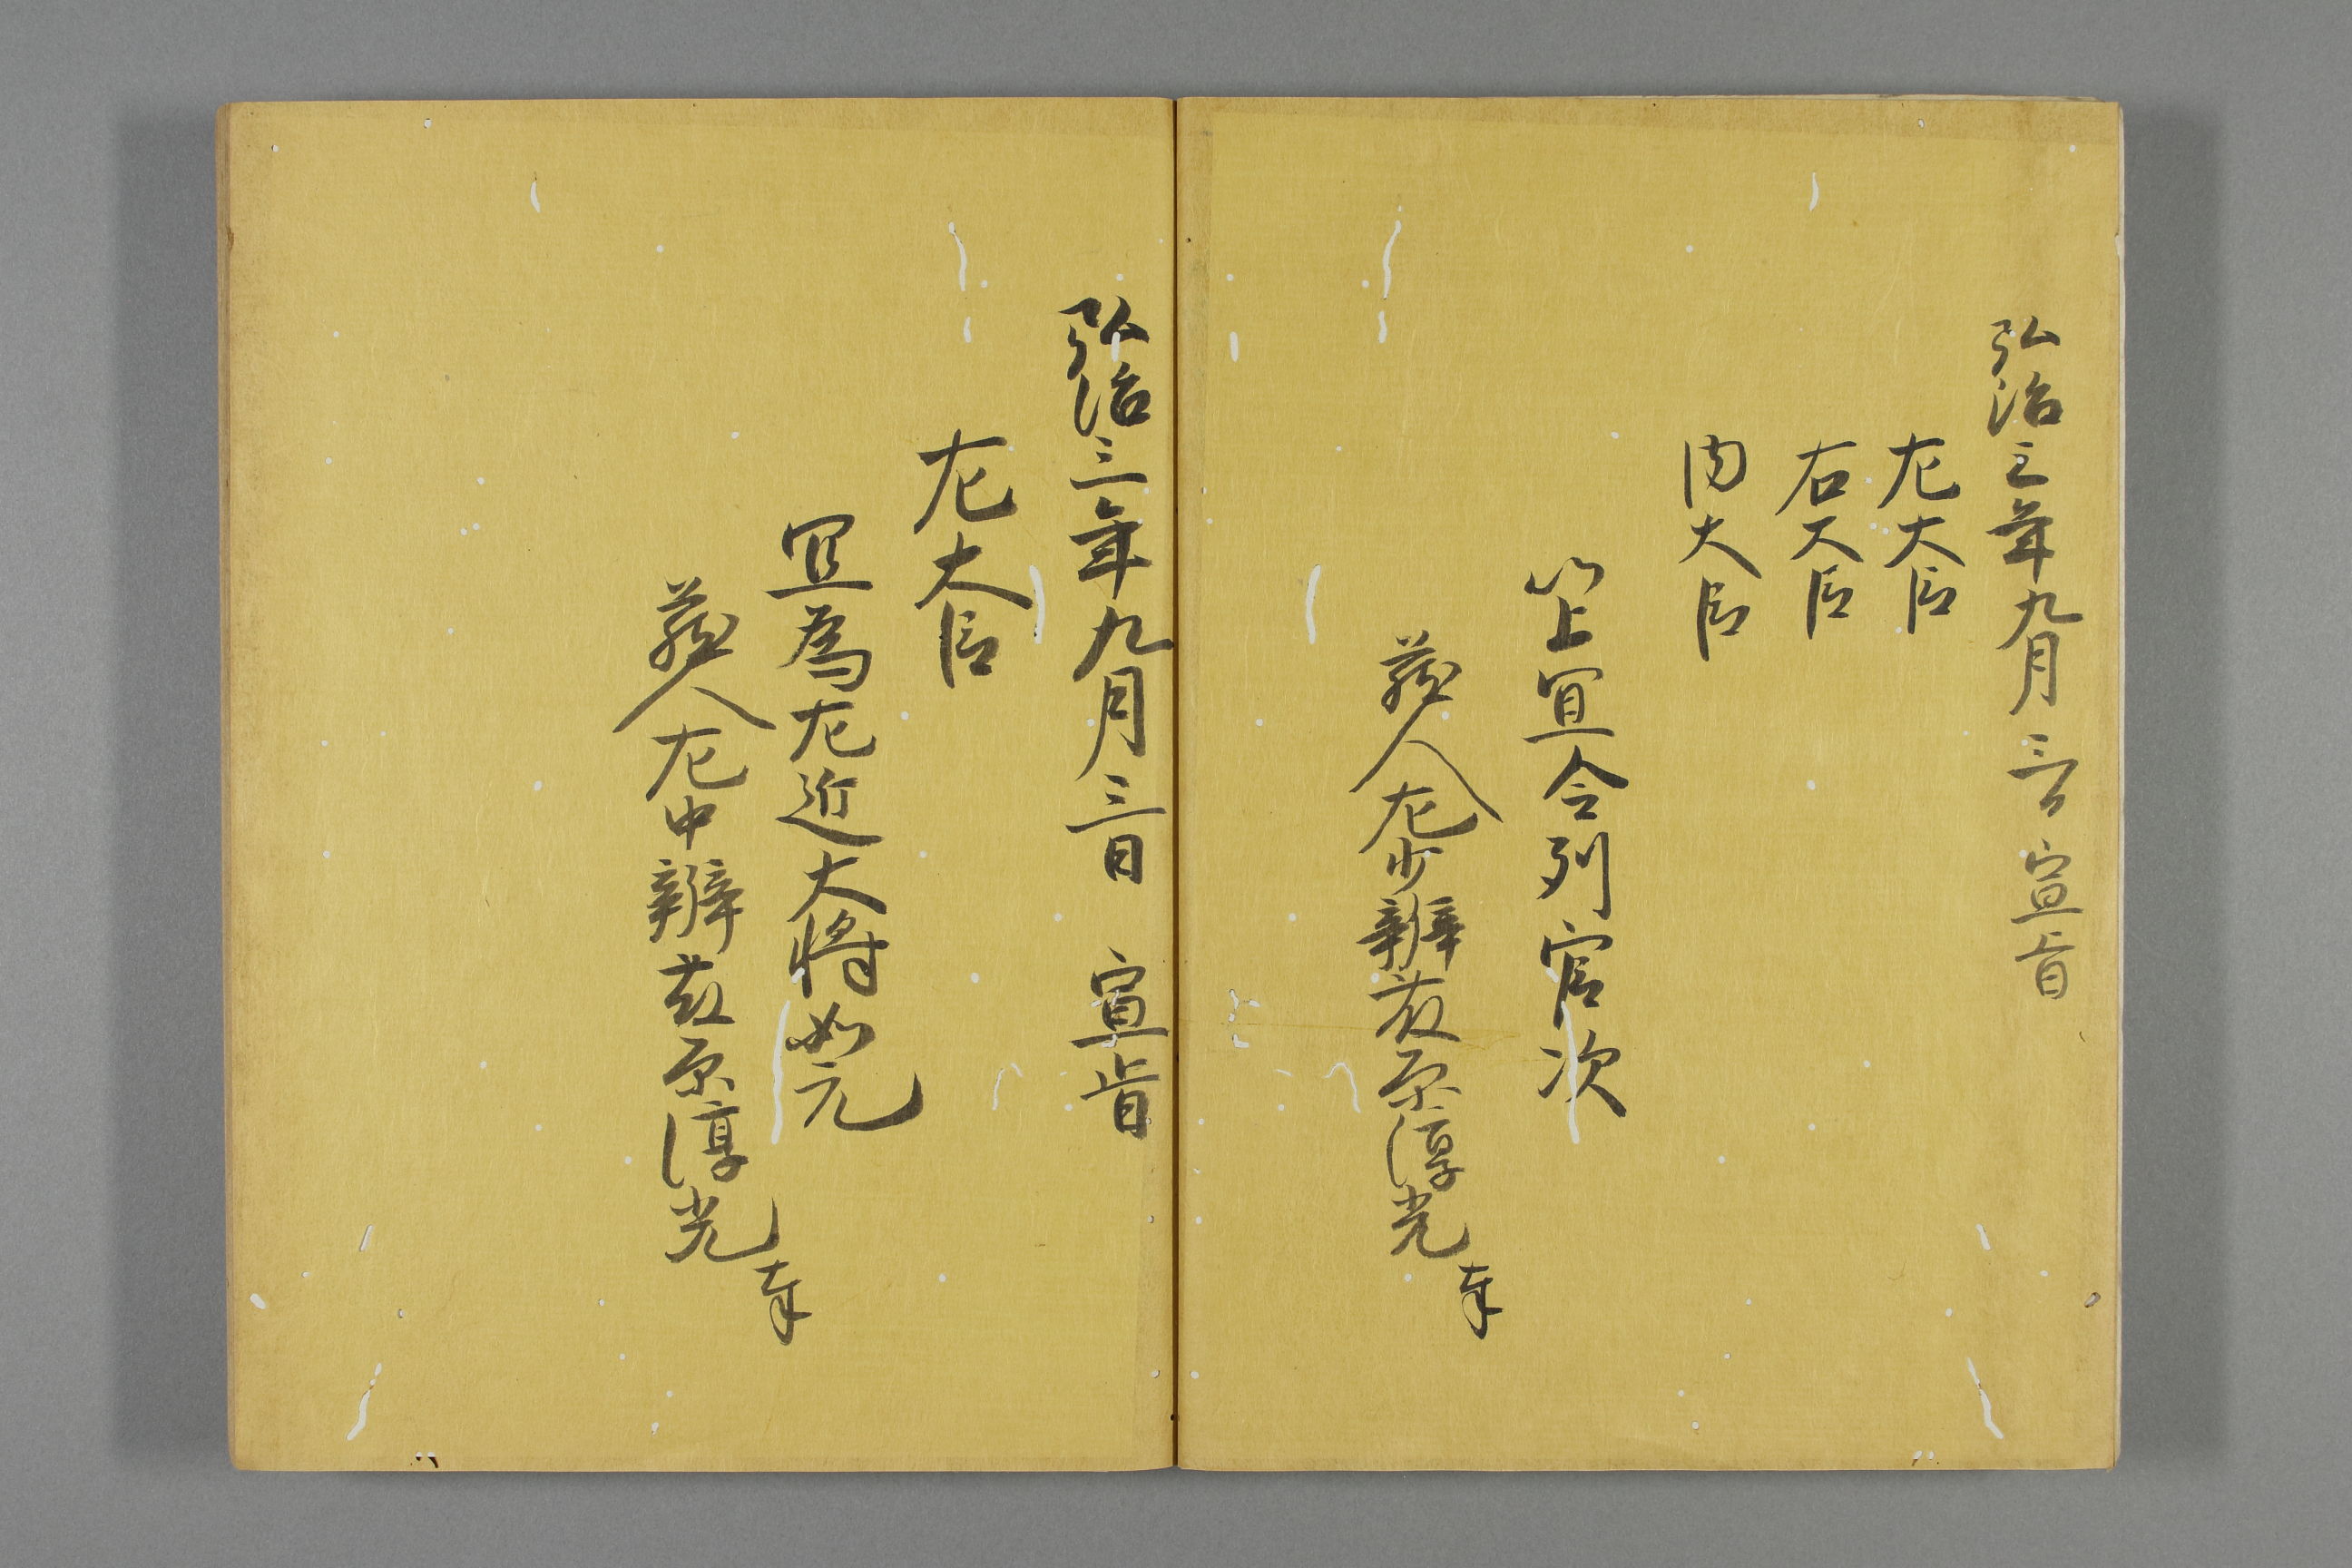 弘治三年九月三日宣旨
左大臣
右大臣
内大臣
以上宜令列官次
蔵人左少辨藤原淳光奉
弘治三年九月三日　宣旨
左大臣
宜為左近大将如元
蔵人左中辨藤原淳光奉